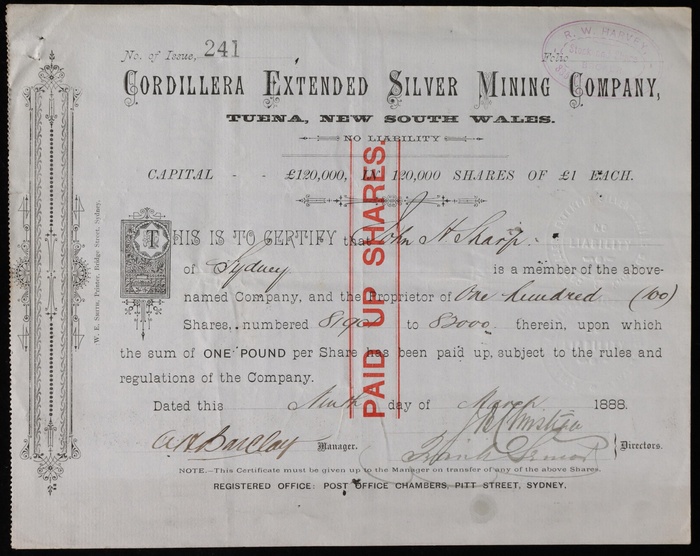 No. of Issue, 241 Folio
R. W. HARVEY.
CORDILLERA EXTENDED SILVER MINING COMPANY,
TUENA, NEW SOUTH WALES.
NO LIABILITY
CAPITAL - - £120,000, IN 120,000 SHARES OF £1 EACH.
THIS IS TO CERTIFY that John H Sharp
of Sydney is a member of the above-
named Company, and the Proprietor of One hundred (100)
Shares, numbered 81901 to 82000 therein, upon which
the sum of ONE POUND per Share has been paid up, subject to the rules and
regulations of the Company.
Dated this Ninth day of March 1888.
A H Barclay Manager. Directors.
NOTE.—This Certificate must be given up to the Manager on transfer of any of the above Shares.
REGISTERED OFFICE: POST OFFICE CHAMBERS, PITT STREET, SYDNEY.
PAID UP SHARES.
W. E. Smith, Printer, Bridge Street, Sydney.